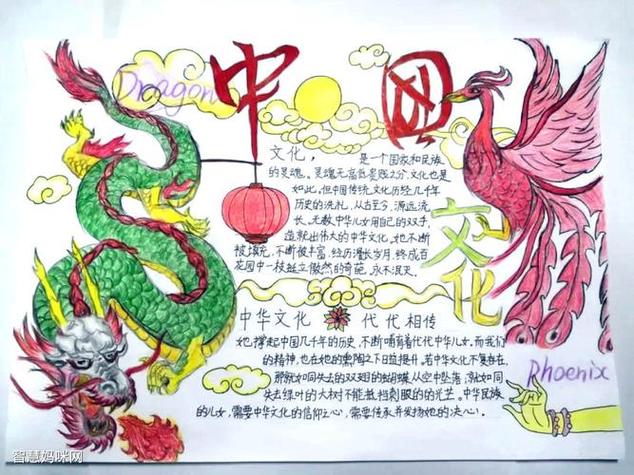 Dragon
中国
文化
文化，是一个国家和民族
的灵魂。灵魂无高低贵贱之分，文化也是
如此，但中国传统文化历经几千年
历史的洗礼，从古至今，源远流
长。无数中华儿女用自己的双手，
造就出伟大的中华文化。她不断
被填充，不断被丰富，经历漫长岁月，终成百
花园中一枝独立傲然的奇葩，永不泯灭。
中华文化 代代相传
她，撑起中国几千年的历史，不断哺育着代代中华儿女。而我们
的精神，也在她的熏陶之下日益提升。若中华文化不复存在，
那就如同失去的双翅的蝴蝶从空中坠落，就如同
失去绿叶的大树不能抵挡刺眼的的光芒。中华民族
的儿女，需要中华文化的信仰之心，需要传承并发扬她的决心！.
Rhoenix
智慧妈咪网